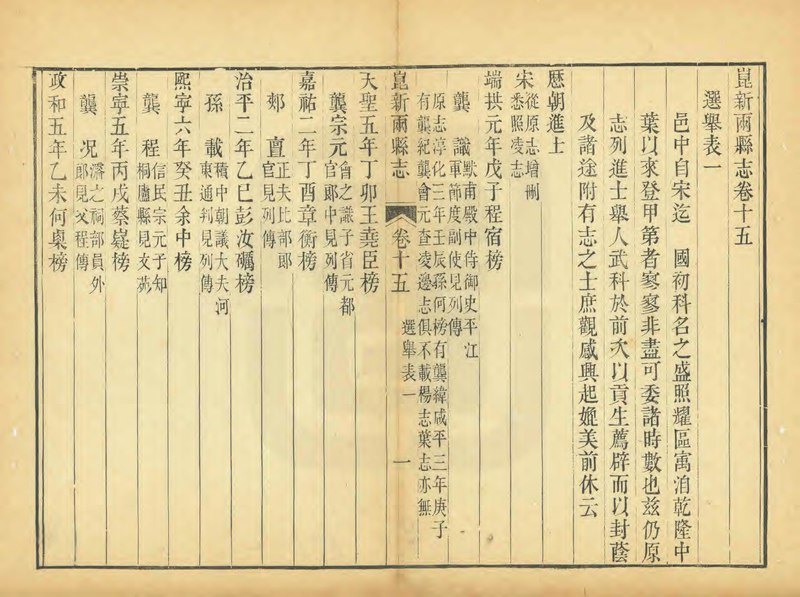 崑新兩縣志卷十五
選舉表一
邑中自宋迄　國初科名之盛照耀區寓洎乾隆中
葉以來登甲第者寥寥非盡可委諸時數也兹仍原
志列進士舉人武科於前次以貢生薦辟而以封蔭
及諸途附有志之士庶觀感興起媲美前休云
歷朝進士
宋從原志增刪
悉照凌志
端拱元年戊子程宿榜
龔　識默南殿中侍御史平江
軍節度副使見列傳
原志淳化三年壬辰孫何榜有龔緯咸平三年庚子
有龔紀龔會元查凌邊志俱不載楊志葉志亦無
崑新兩縣志　卷十五　選舉表一　一
天聖五年丁卯王堯臣榜
龔宗元會之識子省元都
官郎中見列傳
嘉祐二年丁酉章衡榜
郟　亶正夫比部郎
官見列傳
治平二年乙巳彭汝礪榜
孫　載積中朝議大夫河
東通判見列傳
熙寧六年癸丑余中榜
龔　程信民宗元子知
桐廬縣見文苑
崇寧五年丙戌蔡嶷榜
龔　况濬之祠部員外
郎見父程傳
政和五年乙未何㮚榜